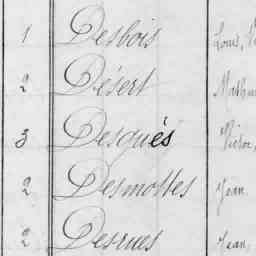 1 Desbois Louis, V
2 Désert Mathur
3 Desqués Victor,
2 Desmottes Jean
2 Desrues Jean,